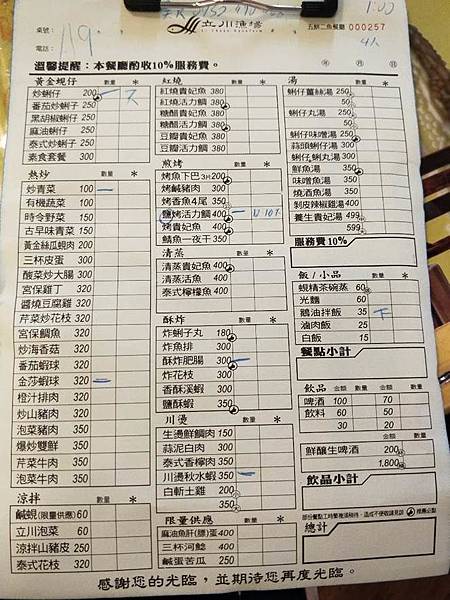 立川漁場
五餅二魚餐廳 000257
桌號： 119
電話：
1:00
4人
溫馨提醒：本餐廳酌收10%服務費。 年 月 日
黃金蜆仔 數量 *
炒蜊仔 200
番茄炒蜊子 250
黑胡椒蜊仔 250
麻油蜊仔 250
泰式炒蜊仔 250
素食套餐 300
熱炒 數量 *
炒青菜 100
有機蔬菜 180
時令野菜 150
古早味青菜 150
黃金絲瓜蜆肉 200
三杯皮蛋 300
酸菜炒大腸 300
宮保雞丁 320
醬燒豆腐雞 320
芹菜炒花枝 320
宮保鯛魚 320
炒海香菇 320
番茄蝦球 320
金莎蝦球 320
橙汁排肉 320
炒山豬肉 320
泡菜豬肉 350
爆炒雙鮮 350
芹菜牛肉 350
泡菜牛肉 350
涼拌 數量 *
鹹蜆(限量供應) 60
立川泡菜 60
涼拌山豬皮 250
泰式花枝 320
紅燒 數量 *
紅燒貴妃魚 380
紅燒活力鯛 380
糖醋貴妃魚 380
糖醋活力鯛 380
豆瓣貴妃魚 380
豆瓣活力鯛 380
煎烤 數量 *
烤魚下巴 3片 200
烤鹹豬肉 300
烤香魚4尾 350
鹽烤活力鯛 400
烤貴妃魚 400
鯖魚一夜干 350
清蒸 數量 *
清蒸貴妃魚 400
清蒸活魚 400
泰式檸檬魚 400
酥炸 數量 *
炸蜊子丸 180
炸魚排 300
酥炸肥腸 300
炸花枝 300
香酥溪蝦 300
鹽酥蝦 350
川燙 數量 *
生燙鮮鯛肉 150
蒜泥白肉 300
泰式香檸肉 350
川燙秋水蝦 350
白斬土雞 200
350
限量供應 數量 *
麻油魚肝(膘)蛋 400
三杯河鯰 400
鹹蛋苦瓜 250
湯 數量 *
蜊仔薑絲湯 250
50
蜊仔丸湯 250
50
蜊仔味噌湯 250
蒜頭蜊仔湯 300
蜊仔蜊丸湯 300
鮮魚湯 350
味噌魚湯 350
燒酒魚湯 350
剝皮辣椒雞湯 400
養生貴妃湯 499
599
服務費10%
飯/小品 數量 *
蜆精茶碗蒸 60
光麵 60
鵝油拌飯 35
滷肉飯 25
白飯 15
餐點小計
飲品 金額 數量 金額 數量
啤酒 100 70
飲料 60 50
30 20
金額 數量
鮮釀生啤酒 200
1,800
飲品小計
部份餐點工時繁複須稍待，造成不便敬請見諒 推薦必點
總計
感謝您的光臨，並期待您再度光臨。